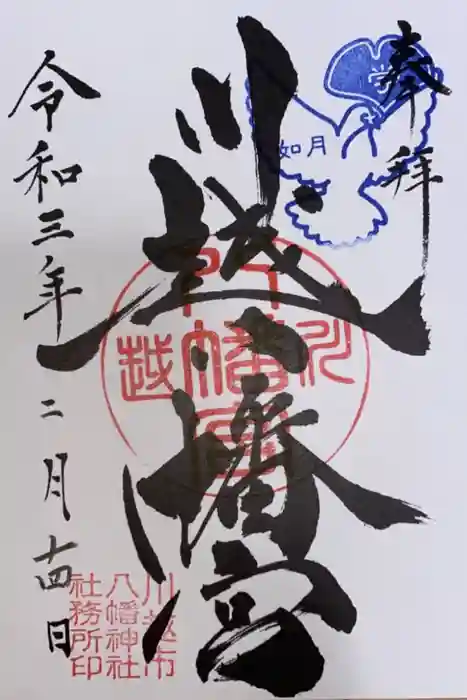 奉拝
如月
川越八幡宮
川越八幡宮
令和三年二月十四日
川越市
八幡神社
社務所印